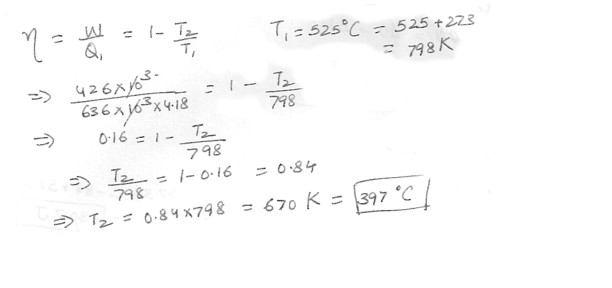 η = W/Q₁ = 1 - T₂/T₁ T₁ = 525°C = 525 + 273
= 798 K
⇒ 426×10³/636×10³×4.18 = 1 - T₂/798
⇒ 0.16 = 1 - T₂/798
⇒ T₂/798 = 1 - 0.16 = 0.84
⇒ T₂ = 0.84×798 = 670 K = 397 °C